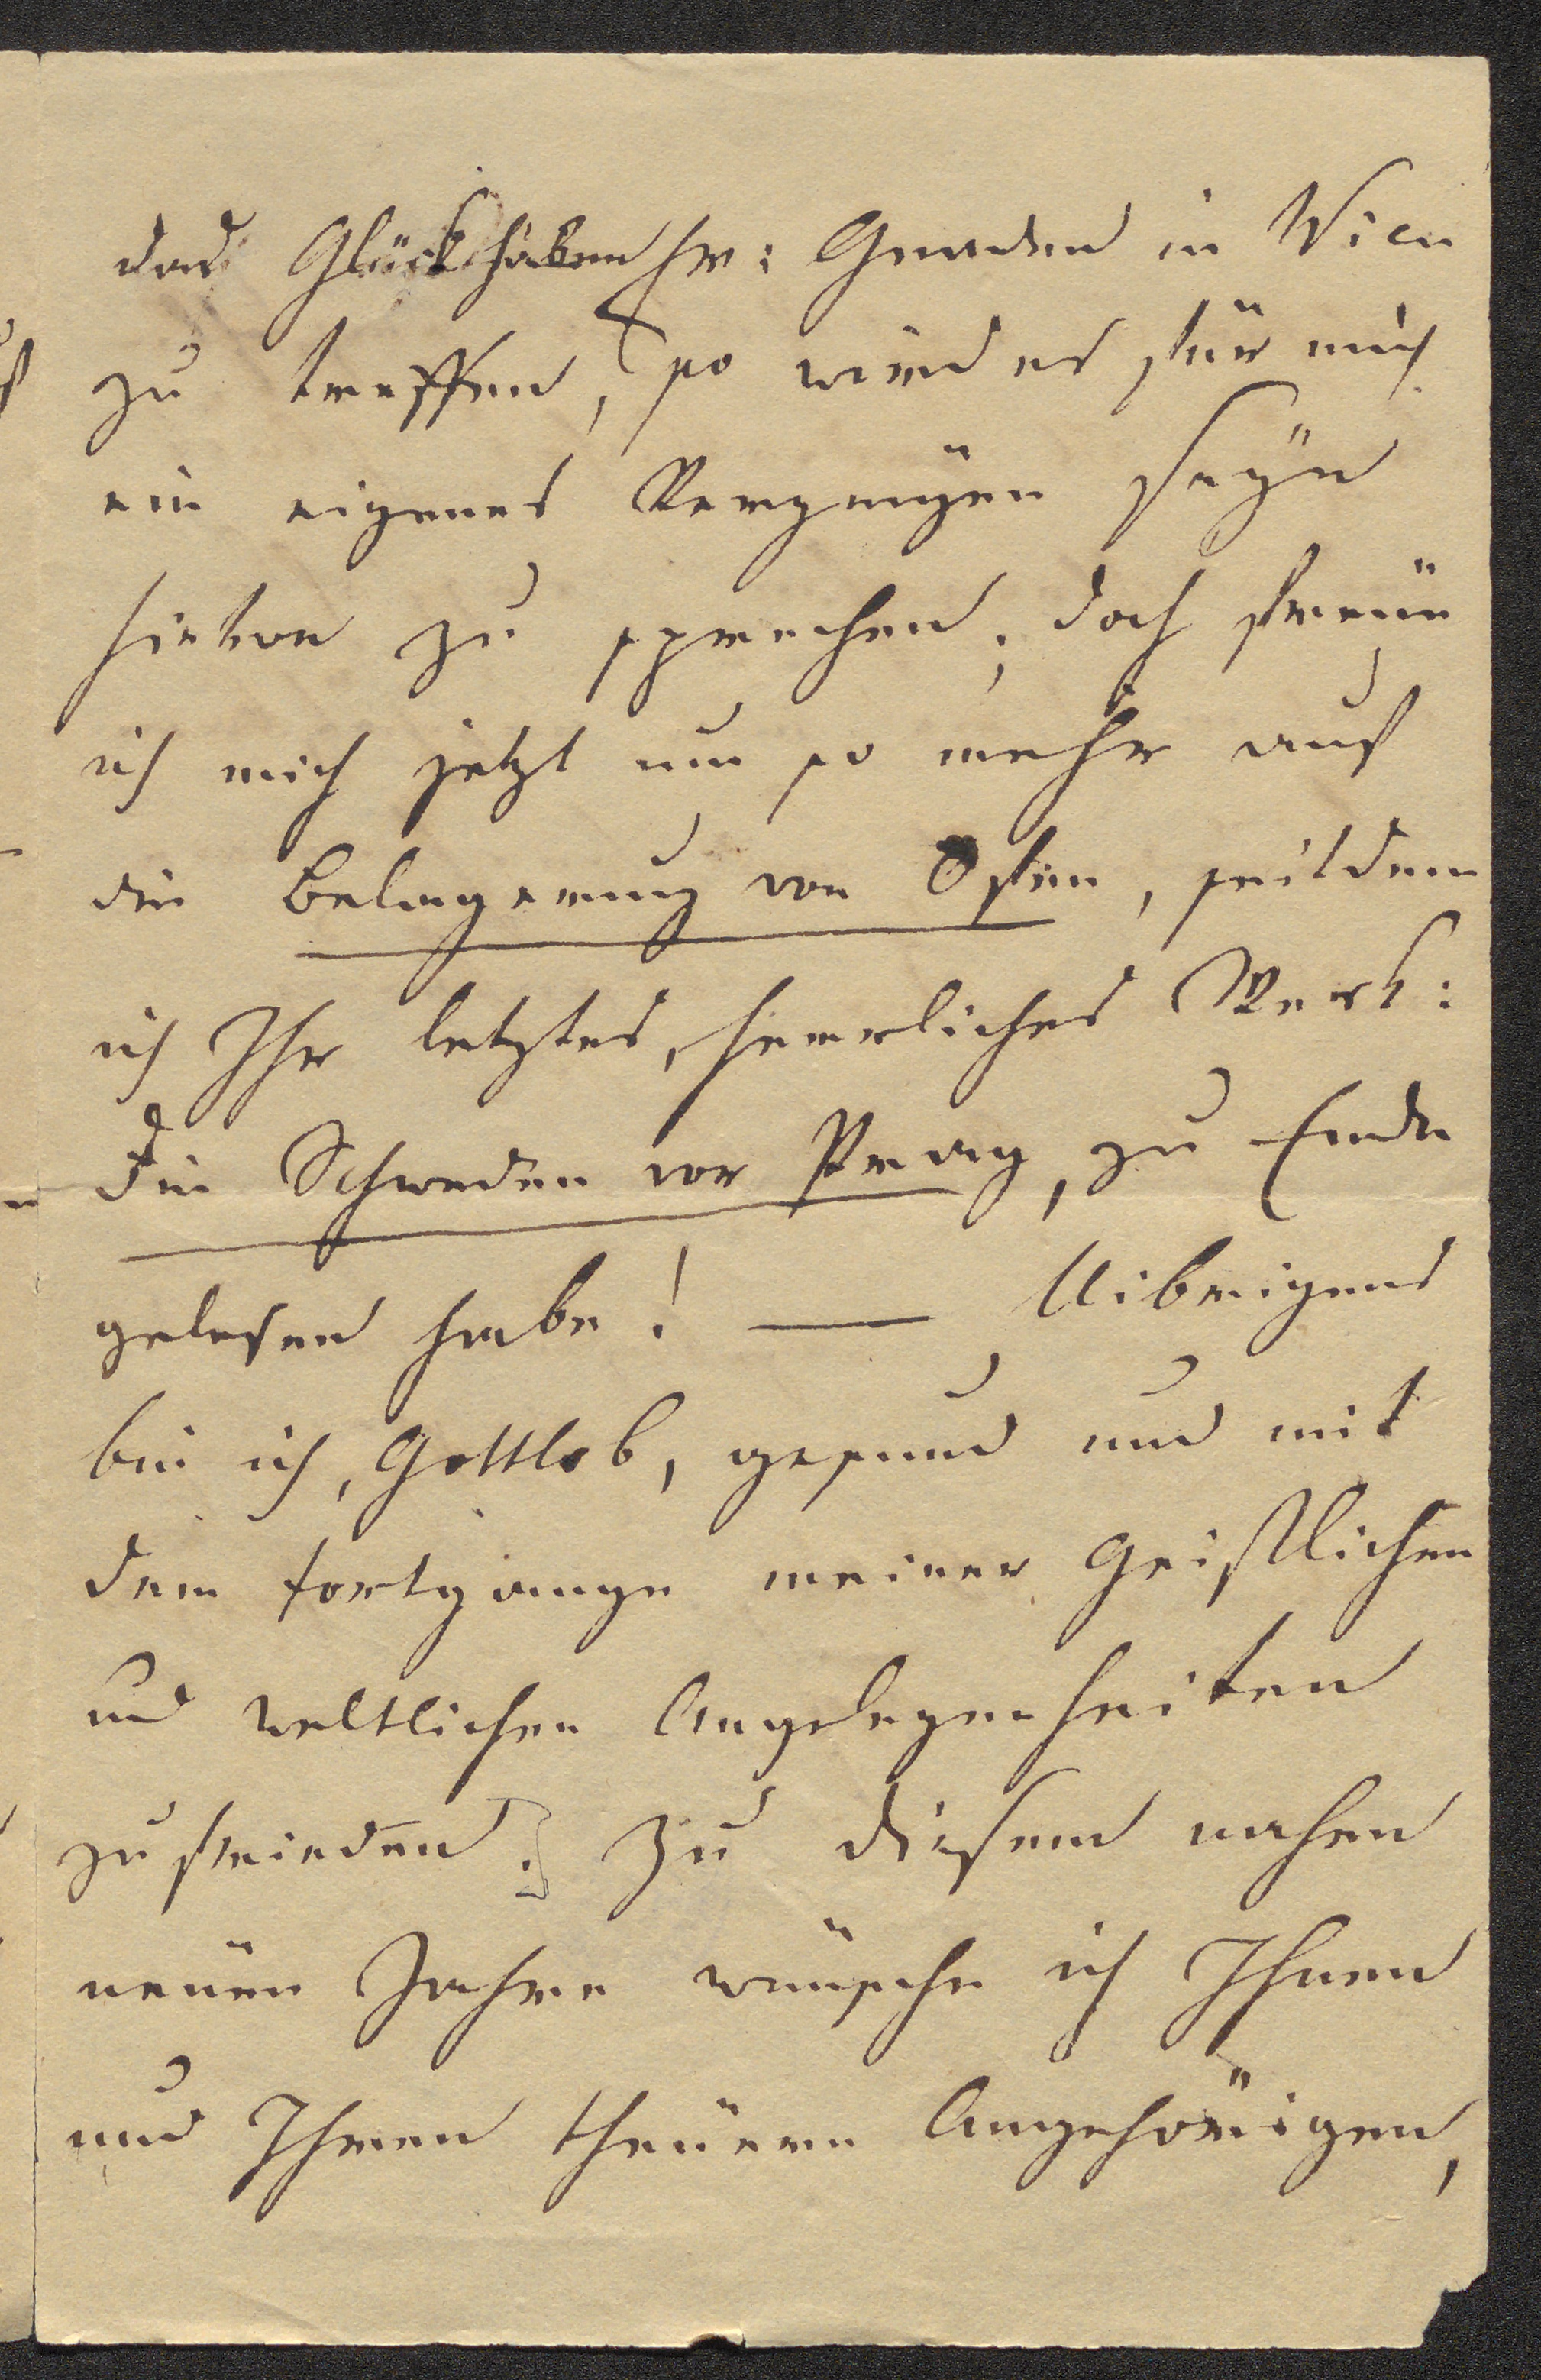 das Glück haben Ew: Gnaden in Wien
zu treffen, so wird es für mich
ein eigenes Vergnügen seyn
hievon zu sprechen; doch freue
ich mich jetzt um so mehr auf
die Belagerung von Ofen, seitdem
ich Ihr letztes, herrliches Werk:
die Schweden vor Prag, zu Ende
gelesen habe! — Uibrigens
bin ich, Gottlob, gesund und mit
dem Fortgange meiner geistlichen
und weltlichen Angelegenheiten
zufrieden. Zu diesem nahen
neuen Jahre wünsche ich Ihnen
und Ihren theüern Angehörigen,